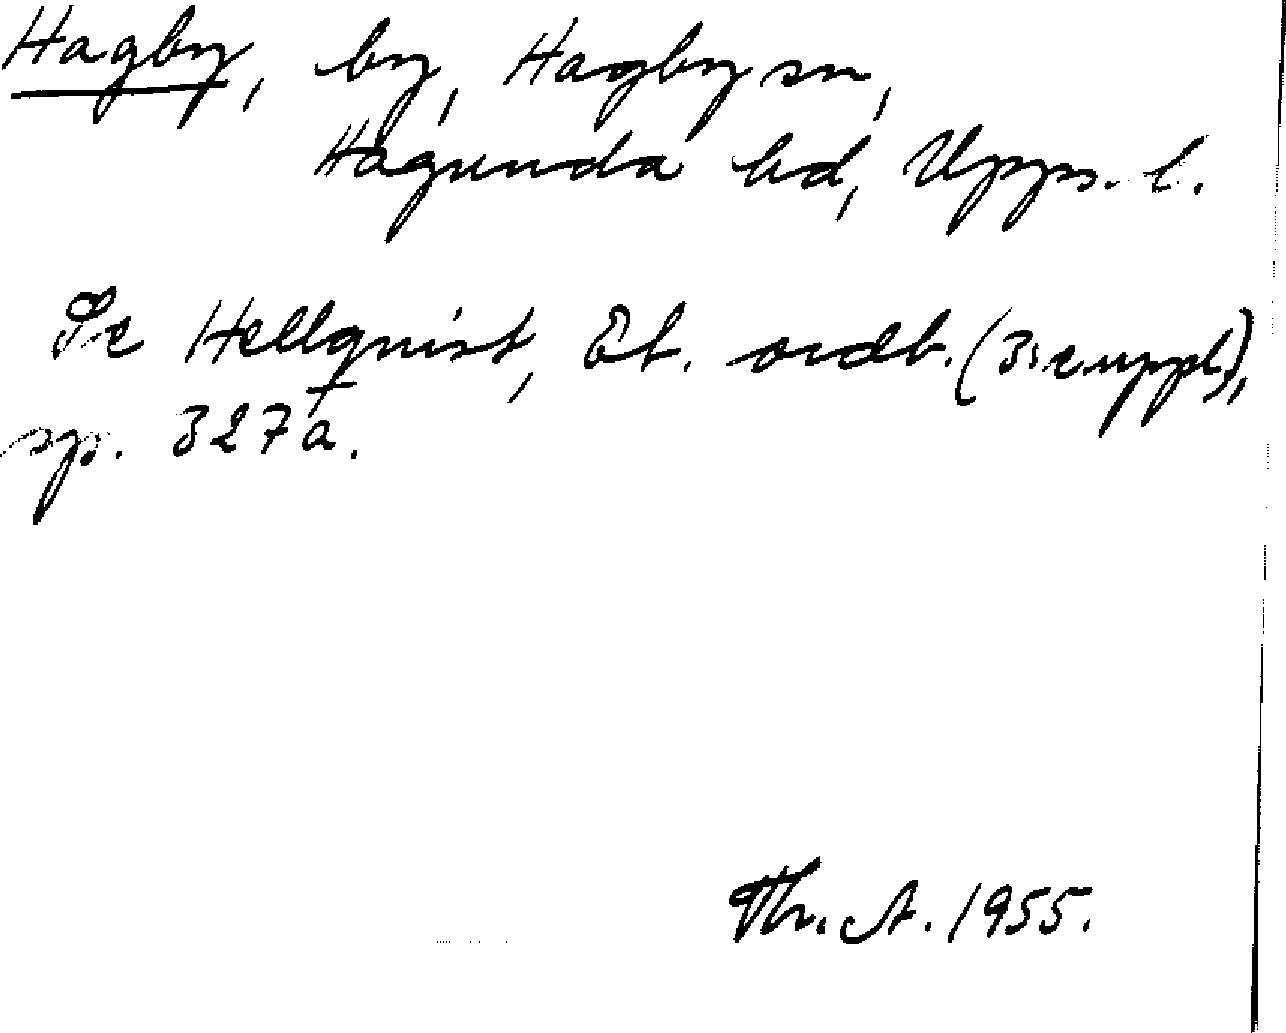 Hagby, by, Hagby sn,
Hagunda hd, Upps. l.
Se Hellquist, Et. ordb. (3:e uppl.),
sp. 327 a.
Th. A. 1955.